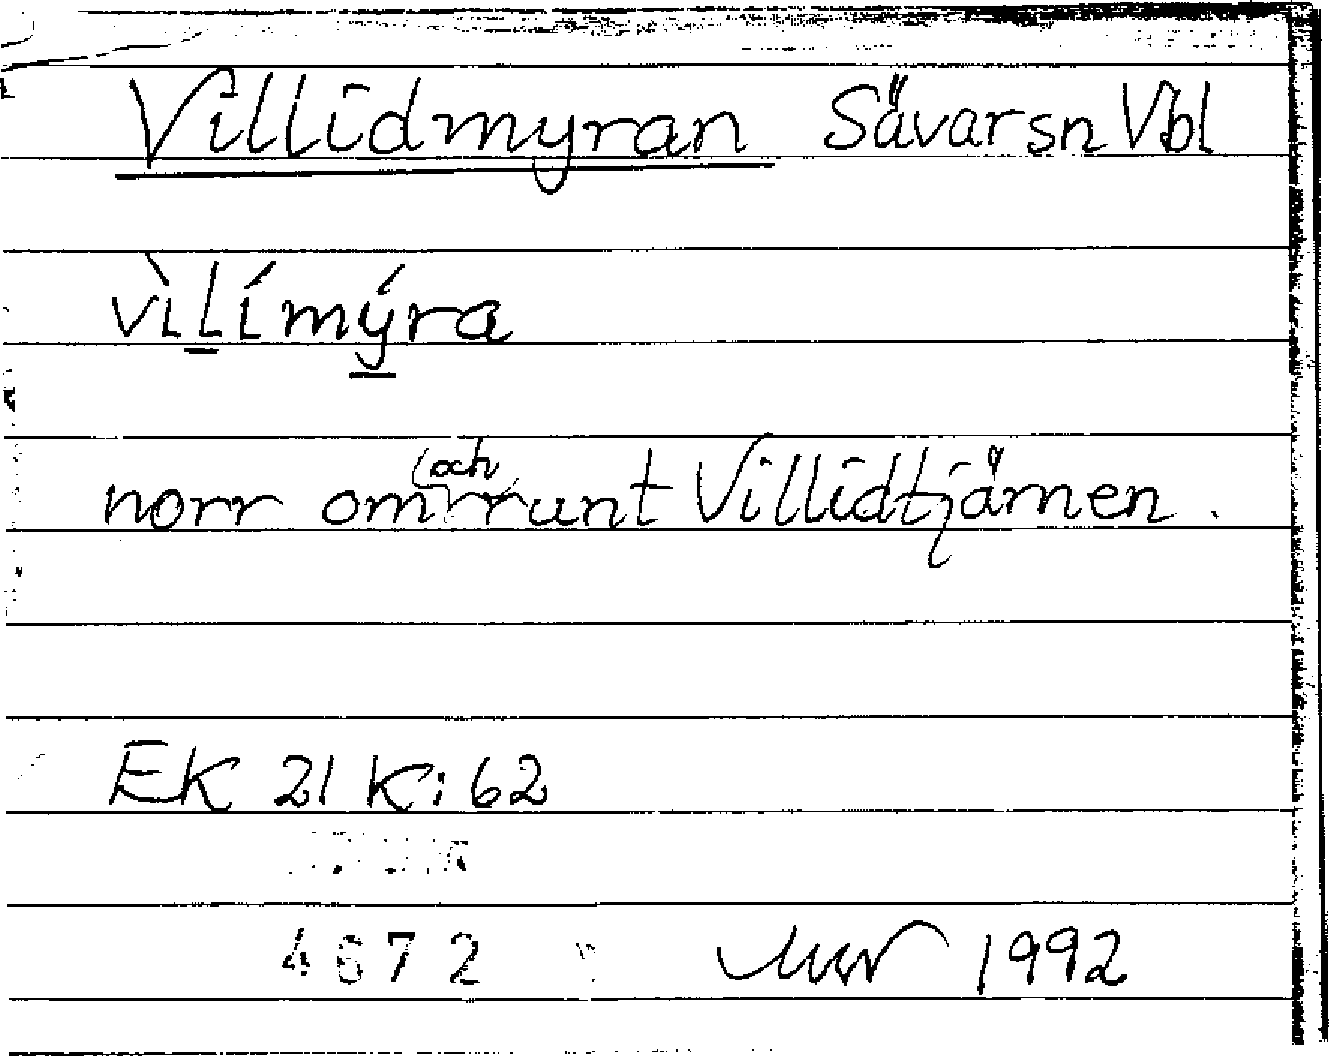 Villidmyran Sävar sn Vbl
vìlímýra
norr om (och) runt Villidtjärnen.
EK 21 K: 62
4672 1992